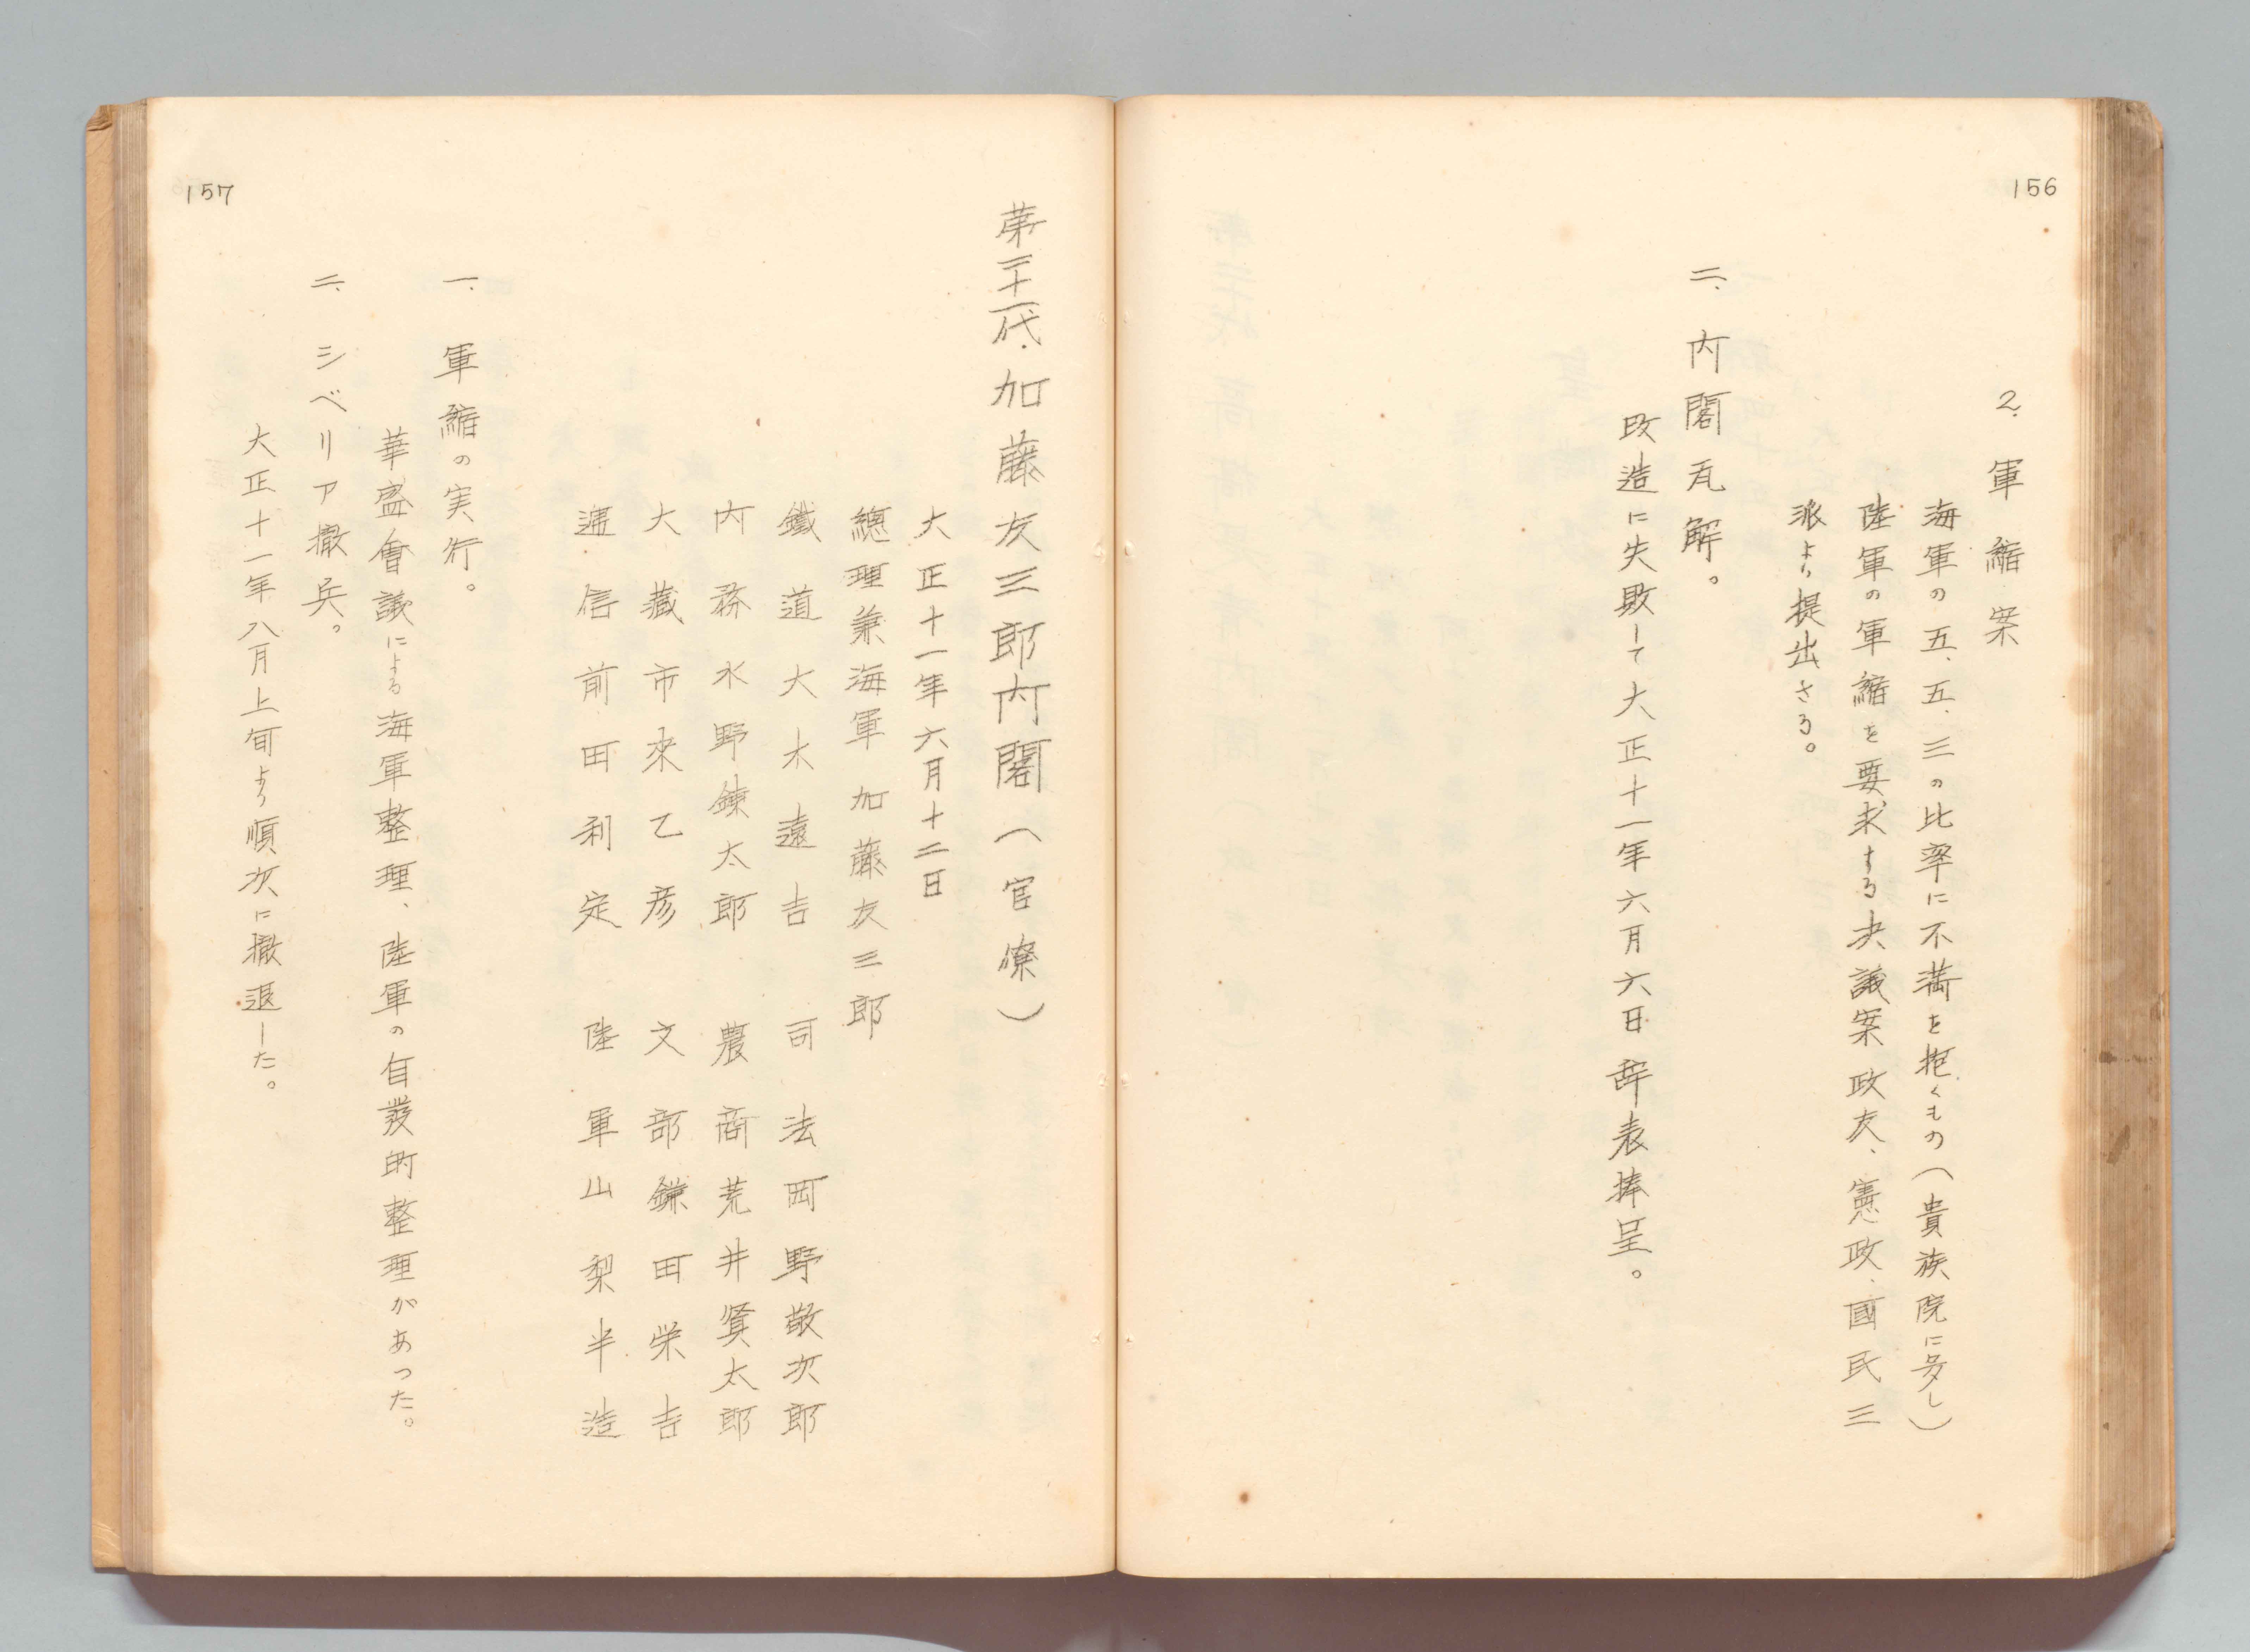 156
2. 軍縮案
海軍の五、五、三の比率に不満を抱くもの（貴族院に多し）
陸軍の軍縮を要求する決議案政友、憲政、國民三
派より提出さる。
二、内閣瓦解。
改造に失敗して大正十一年六月六日辞表捧呈。
157
第二十一代・加藤友三郎内閣（官僚）
大正十一年六月十二日
總理兼海軍加藤友三郎
鐵道大木遠吉 司法岡野敬次郎
内務水野錬太郎 農商荒井賀太郎
大藏市來乙彦 文部鎌田栄吉
逓信前田利定 陸軍山梨半造
一、軍縮の実行。
華盛會議による海軍整理、陸軍の自發的整理があった。
二、シベリア撤兵。
大正十一年八月上旬より順次に撤退した。